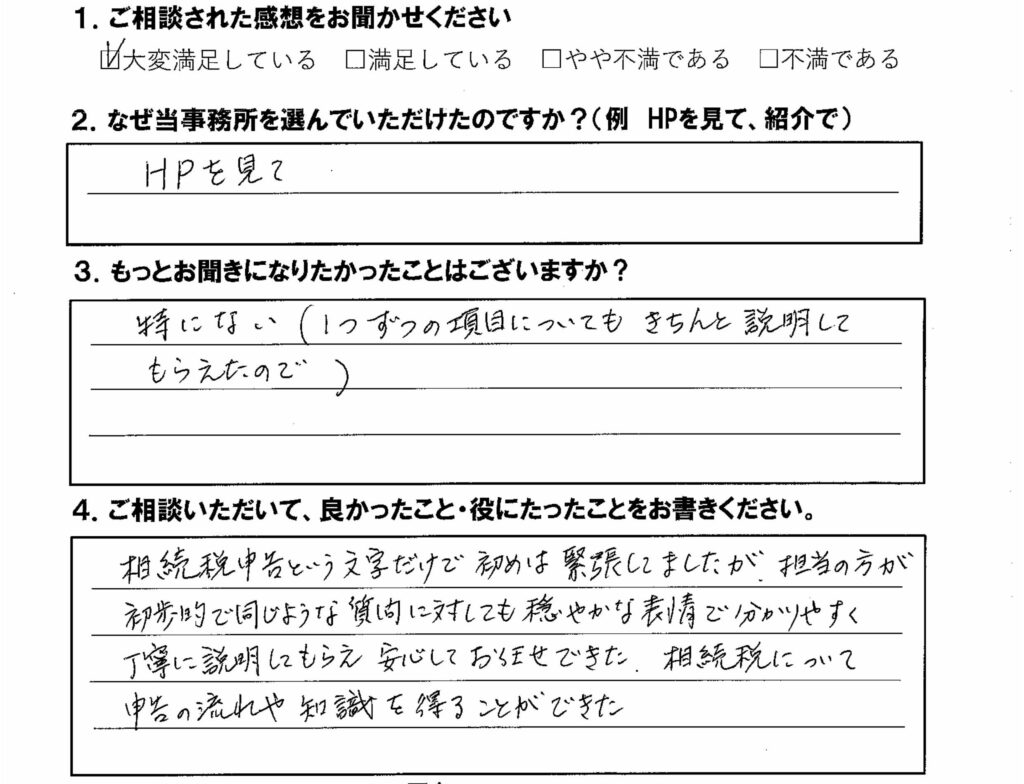 1. ご相談された感想をお聞かせください
☑大変満足している □満足している □やや不満である □不満である
2. なぜ当事務所を選んでいただけたのですか？（例　HPを見て、紹介で）
HPを見て
3. もっとお聞きになりたかったことはございますか？
特にない（1つずつの項目についても きちんと説明して
もらえたので ）
4. ご相談いただいて、良かったこと・役にたったことをお書きください。
相続税申告という文字だけで 初めは 緊張してましたが、担当の方が
初歩的で同じような質問に対しても穏やかな表情で分かりやすく
丁寧に説明してもらえ 安心して お任せできた. 相続税について
申告の流れや 知識を得ることができた